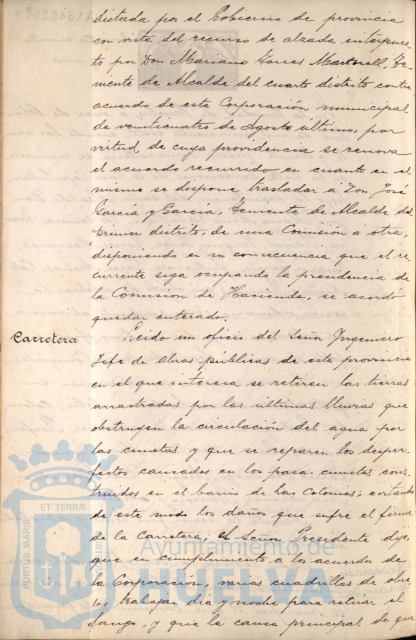 dictada por el Gobierno de provincia
con vista del recurso de alzada interpues-
to por Don Mariano Torres Martorell, Te-
niente de Alcalde del cuarto distrito contra
acuerdo de esta Corporación, municipal
de veinticuatro de Agosto último, por
virtud de cuya providencia se renova
el acuerdo recurrido en cuanto en el
mismo se dispone trasladar á Don José
García y García, Teniente de Alcalde del
primer distrito, de una Comisión á otra,
disponiendo en su consecuencia que el re-
currente siga ocupando la presidencia de
la Comision de Hacienda, se acordó
quedar enterado.
Carretera
Leido un oficio del Señor Ingeniero
Jefe de Obras públicas de esta provincia
en el que interesa se retiren las tierras
arrastradas por las últimas lluvias que
obstruyen la circulación del agua por
las cunetas y que se reparen los desper-
fectos causados en los pasa-cunetas cons-
truidos en el barrio de las Colonias; evitando
de este modo los daños que sufre el firme
de la Carretera; el Señor Presidente dijo,
que en cumplimiento a los acuerdos de
la Corporación, varias cuadrillas de obre-
ros trabajan dia y noche para retirar el
fango, y que la causa principal de que
PORTUS MARIS
ET TERRÆ
Ayuntamiento de
HUELVA